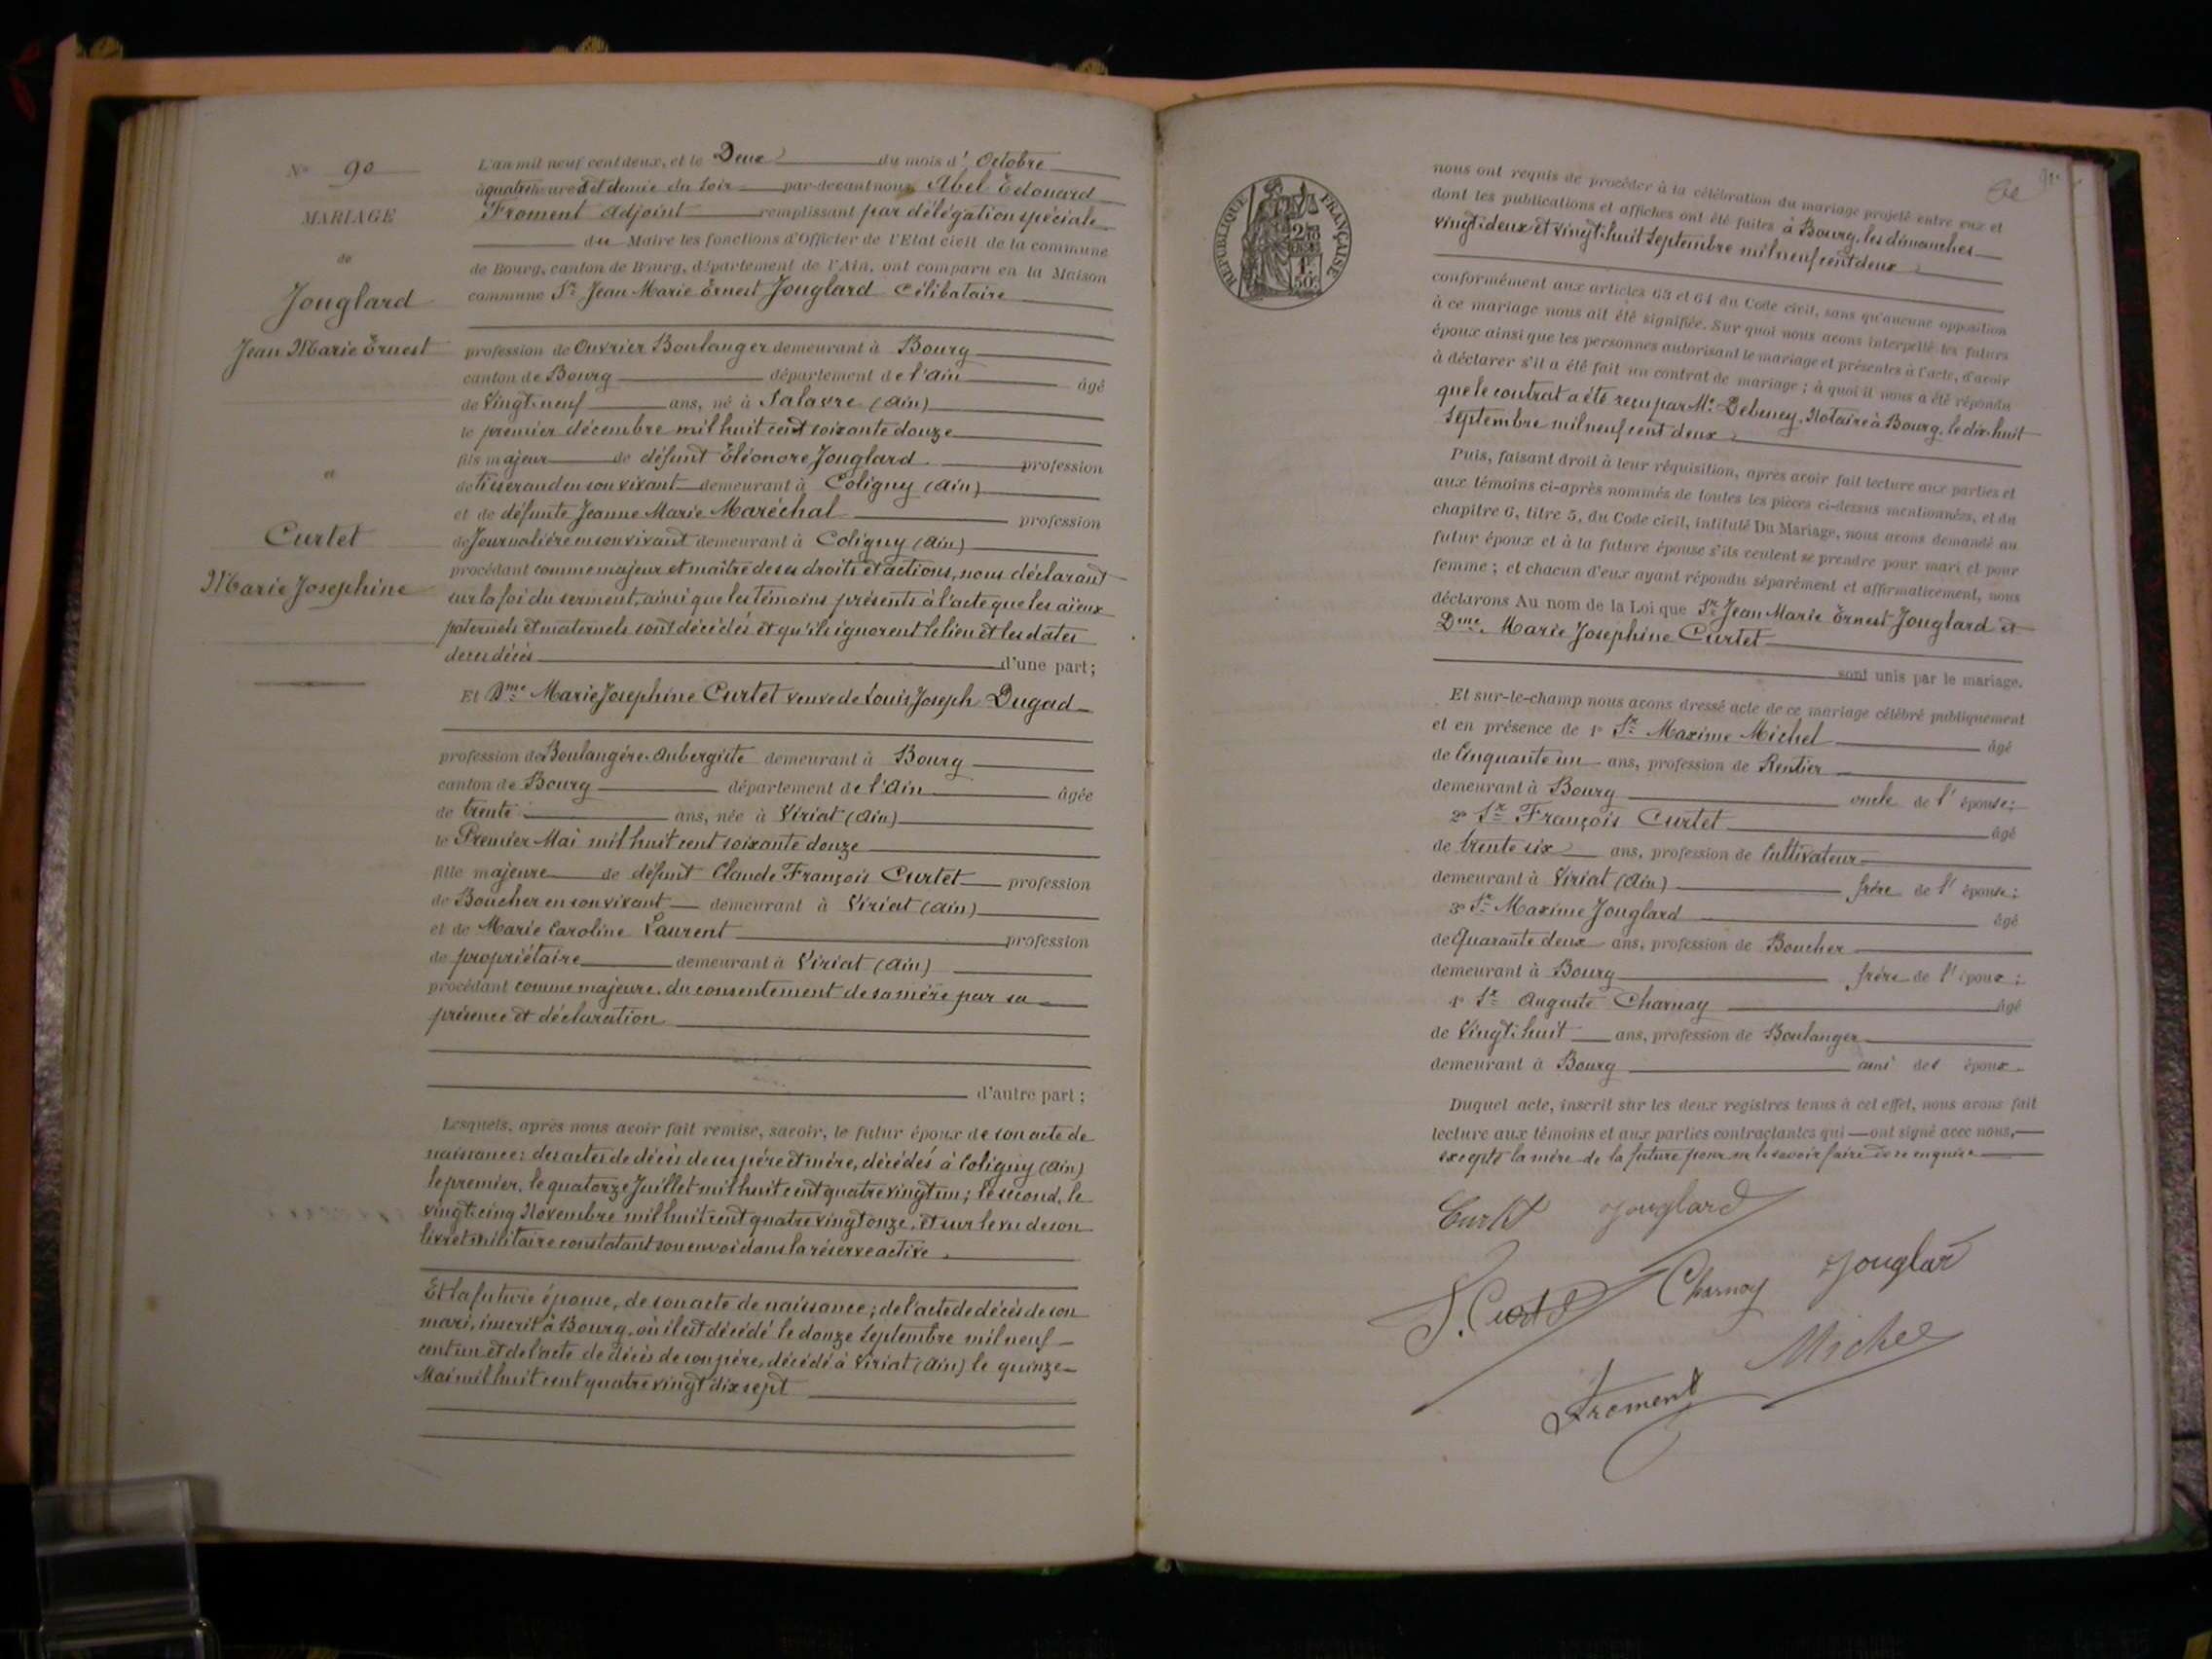 N° 90
MARIAGE
de
Jouglard
Jean Marie Ernest
et
Curtet
Marie Josephine
L'an mil neuf cent deux, et le Deux du mois d'Octobre
à quatre heures et demie du soir par-devant nous Abel Edouard
Froment Adjoint remplissant par délégation spéciale
du Maire les fonctions d'Officier de l'Etat civil de la commune
de Bourg, canton de Bourg, département de l'Ain, ont comparu en la Maison
commune Sr Jean Marie Ernest Jouglard Célibataire
profession de Ouvrier Boulanger demeurant à Bourg
canton de Bourg département de l'Ain âgé
de Vingt-neuf ans, né à Salavre (Ain)
le premier décembre mil huit cent soixante douze
fils majeur de défunt Eléonore Jouglard profession
de tisserand en son vivant demeurant à Coligny (Ain)
et de défunte Jeanne Marie Maréchal profession
de Journalière en son vivant demeurant à Coligny (Ain)
procédant comme majeur et maître de ses droits et actions, nous déclarant
sur la foi du serment, ainsi que les témoins présents à l'acte que les aïeux
paternels et maternels sont décédés et qu'ils ignorent le lieu et les dates
de ces décès d'une part;
Et Dme Marie Josephine Curtet veuve de Louis Joseph Dugad
profession de Boulangère-Aubergiste demeurant à Bourg
canton de Bourg département de l'Ain âgée
de trente ans, née à Viriat (Ain)
le Premier Mai mil huit cent soixante douze
fille majeure de défunt Claude François Curtet profession
de Boucher en son vivant demeurant à Viriat (Ain)
et de Marie Caroline Laurent profession
de propriétaire demeurant à Viriat (Ain)
procédant comme majeure, du consentement de sa mère par sa
présence et déclaration
d'autre part;
Lesquels, après nous avoir fait remise, savoir, le futur époux de son acte de
naissance: des actes de décès de ses père et mère, décédés à Coligny (Ain)
le premier, le quatorze Juillet mil huit cent quatre vingt un; le second, le
vingt cinq Novembre mil huit cent quatre vingt onze, et sur le vu de son
livret militaire constatant son envoi dans la réserve active.
Et la future épouse, de son acte de naissance; de l'acte de décès de son
mari, inscrit à Bourg, où il est décédé le douze Septembre mil neuf
cent un et de l'acte de décès de son père, décédé à Viriat (Ain) le quinze
Mai mil huit cent quatre vingt dix sept
RÉPUBLIQUE FRANÇAISE
nous ont requis de procéder à la célébration du mariage projeté entre eux et
dont les publications et affiches ont été faites à Bourg, les dimanches
vingt deux et vingt-huit Septembre mil neuf cent deux
conformément aux articles 63 et 64 du Code civil, sans qu'aucune opposition
à ce mariage nous ait été signifiée. Sur quoi nous avons interpellé les futurs
époux ainsi que les personnes autorisant le mariage et présentes à l'acte, d'avoir
à déclarer s'il a été fait un contrat de mariage; à quoi il nous a été répondu
que le contrat a été reçu par Me Debeney, Notaire à Bourg, le dix-huit
Septembre mil neuf cent deux
Puis, faisant droit à leur réquisition, après avoir fait lecture aux parties et
aux témoins ci-après nommés de toutes les pièces ci-dessus mentionnées, et du
chapitre 6, titre 5, du Code civil, intitulé Du Mariage, nous avons demandé au
futur époux et à la future épouse s'ils veulent se prendre pour mari et pour
femme; et chacun d'eux ayant répondu séparément et affirmativement, nous
déclarons Au nom de la Loi que Sr Jean Marie Ernest Jouglard et
Dme Marie Josephine Curtet
sont unis par le mariage.
Et sur-le-champ nous avons dressé acte de ce mariage célébré publiquement
et en présence de 1° Sr Maxime Michel âgé
de Cinquante un ans, profession de Rentier
demeurant à Bourg oncle de l'épouse;
2° Sr François Curtet âgé
de trente six ans, profession de Cultivateur
demeurant à Viriat (Ain) frère de l'épouse;
3° Sr Maxime Jouglard âgé
de Quarante deux ans, profession de Boucher
demeurant à Bourg frère de l'époux;
4° Sr Auguste Charnay âgé
de Vingt-huit ans, profession de Boulanger
demeurant à Bourg ami des époux.
Duquel acte, inscrit sur les deux registres tenus à cet effet, nous avons fait
lecture aux témoins et aux parties contractantes qui ont signé avec nous,
excepté la mère de la future pour ne le savoir faire de ce enquise
Curtet Jouglard
F. Curtet Charnay Jouglard
Michel
Froment